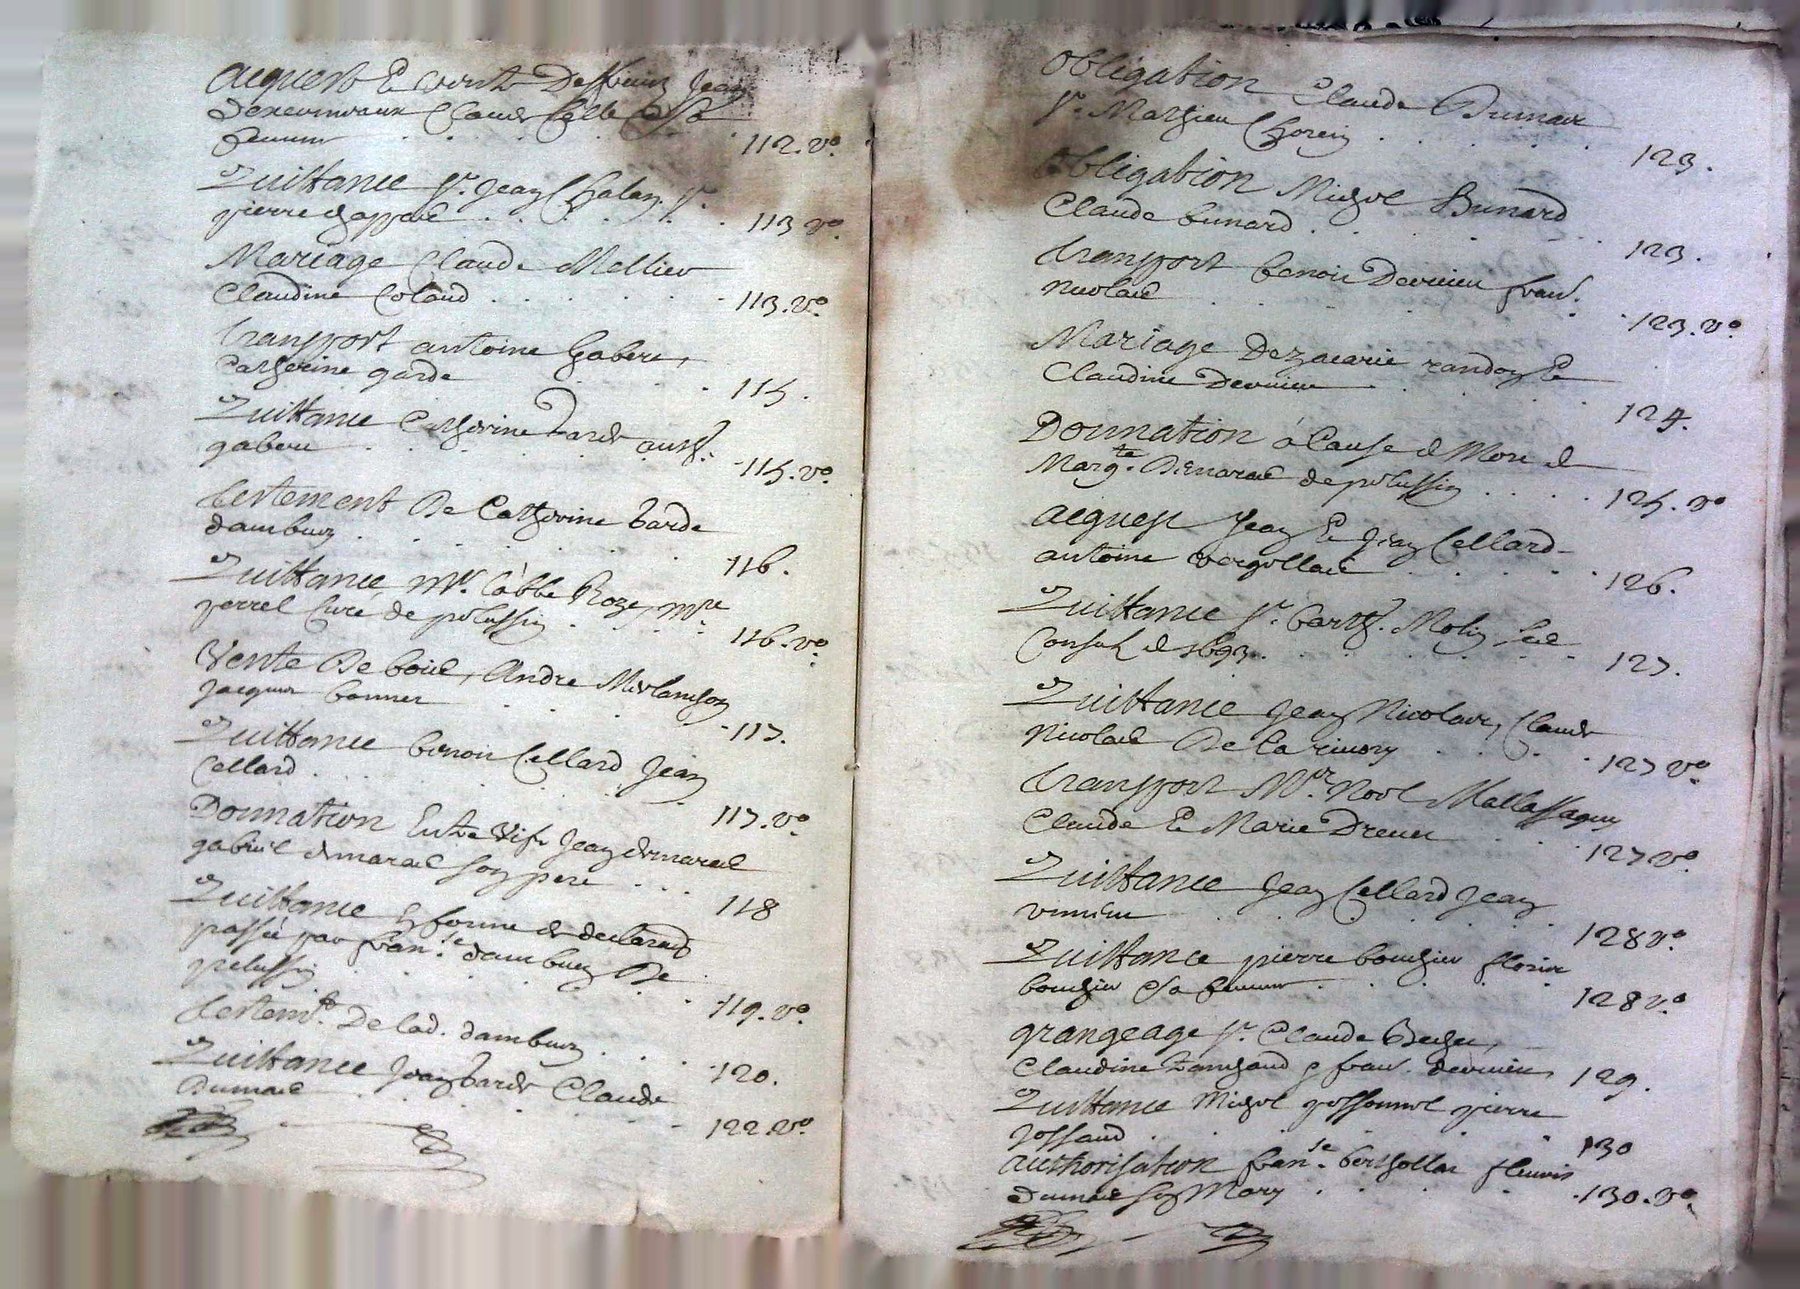 acquest E vente Jean
Claude Celle E Sa
femme 112. vo.
Quittance Sr. Jean Chalan Sr.
pierre chappuis 113 vo.
Mariage Claude Mellier
Claudine Colaud 113. vo.
transport antoine Gaberu,
Catherine garde 115.
Quittance Catherine garde anth.
gaberu 115. vo.
testement De Catherine tarde
dambuin 116.
Quittance, Mr. l'abbé Roze, Mre
perrel Cure de pelussin 116. vo.
Vente De bois, Andre
Jacques bonnet 117.
Quittance benoit Cellard Jean
Cellard 117. vo.
Donnation Entre Vifs Jean
gabriel son pere 118
Quittance En forme de declarãon
passée par franse. dambuin De
pelussin 119. vo.
testemt. De lad. dambuin 120.
Quittance Jean tarde Claude
Dumas 122 vo.
obligation Claude Dumas
Sr. Mathieu Chorein 123.
obligation Michel Bunard
Claude bunard 123.
transport benoit Dervieu frans.
Nicolas 123. vo.
Mariage De zacarie randon E
Claudine Dervieu 124.
Donnation á Cause de Mort de
Margte. de pelussin 125. vo
acquest Jean E Jean Cellard
antoine vergollat 126.
Quittance Sr. barth. Molin
Consul de 1693. 127.
Quittance Jean Nicolas, Claude
Nicolas De la rivory 127 vo.
transport Mr. Noel Mallassagny
Claude E Marie Drevet 127 vo.
Quittance Jean Cellard Jean
128 vo.
Quittance pierre bouchet florie
bouchet Sa femme 128 vo.
grangeage Sr. Claude
Claudine frans. dervieu 129.
Quittance Michel possonnel pierre
Jossaud 130
authorisation franse. berthollat fleuris
dumas son Mary 130. vo.